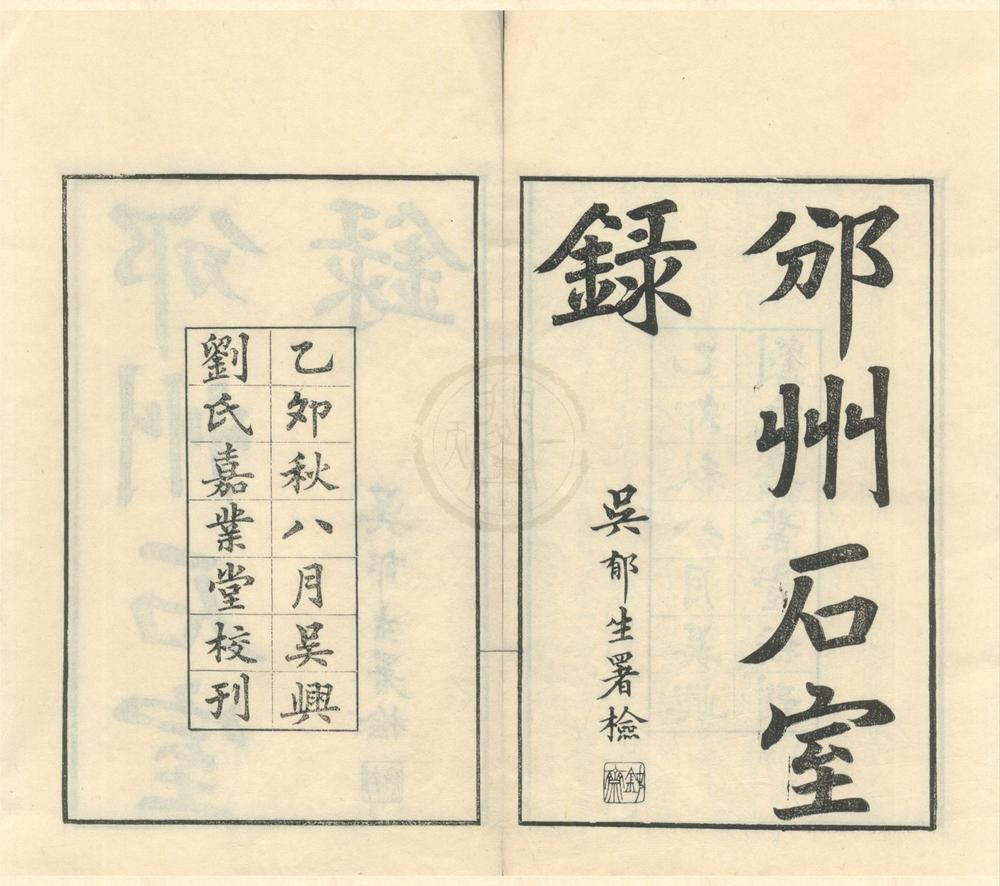 邠州石室
録
吳郁生署檢
乙夘秋八月吳興
劉氏嘉業堂校刊